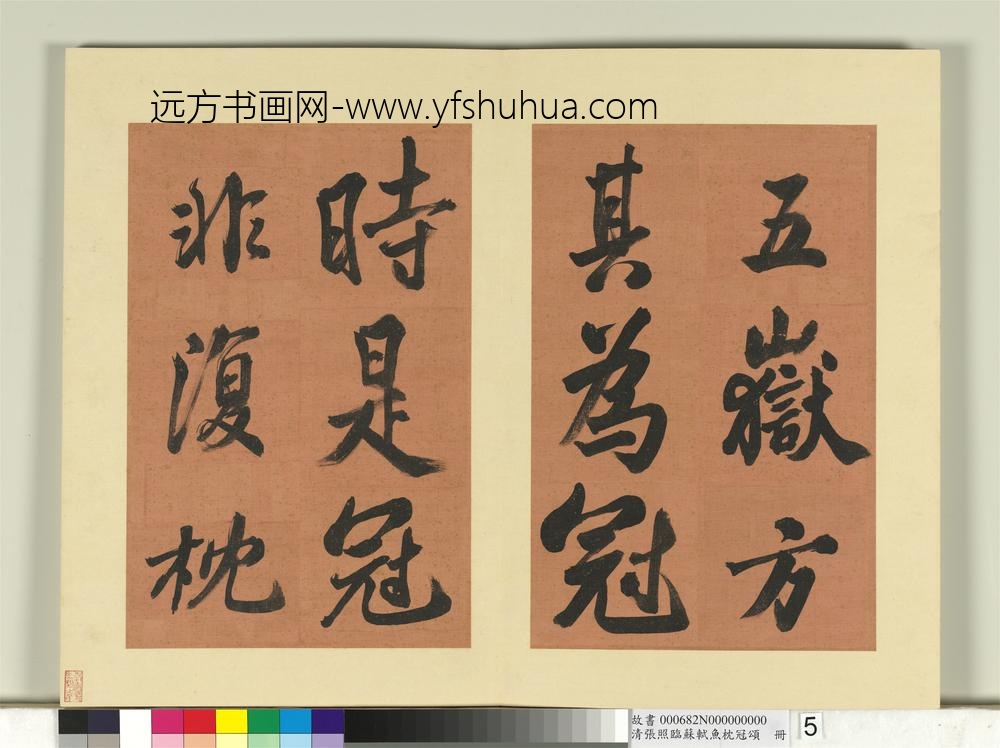 远方书画网-www.yfshuhua.com
五嶽方
其為冠
時是冠
非復枕
故書 000682N000000000
清張照臨蘇軾魚枕冠頌 冊
5